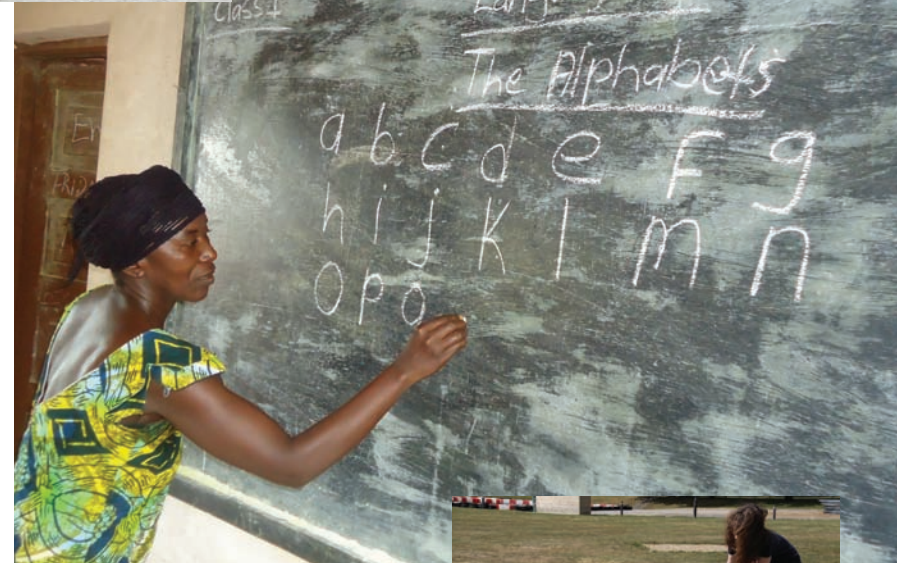 Class 1
The Alphabets
a b c d e F g
h i j k l m n
o p o